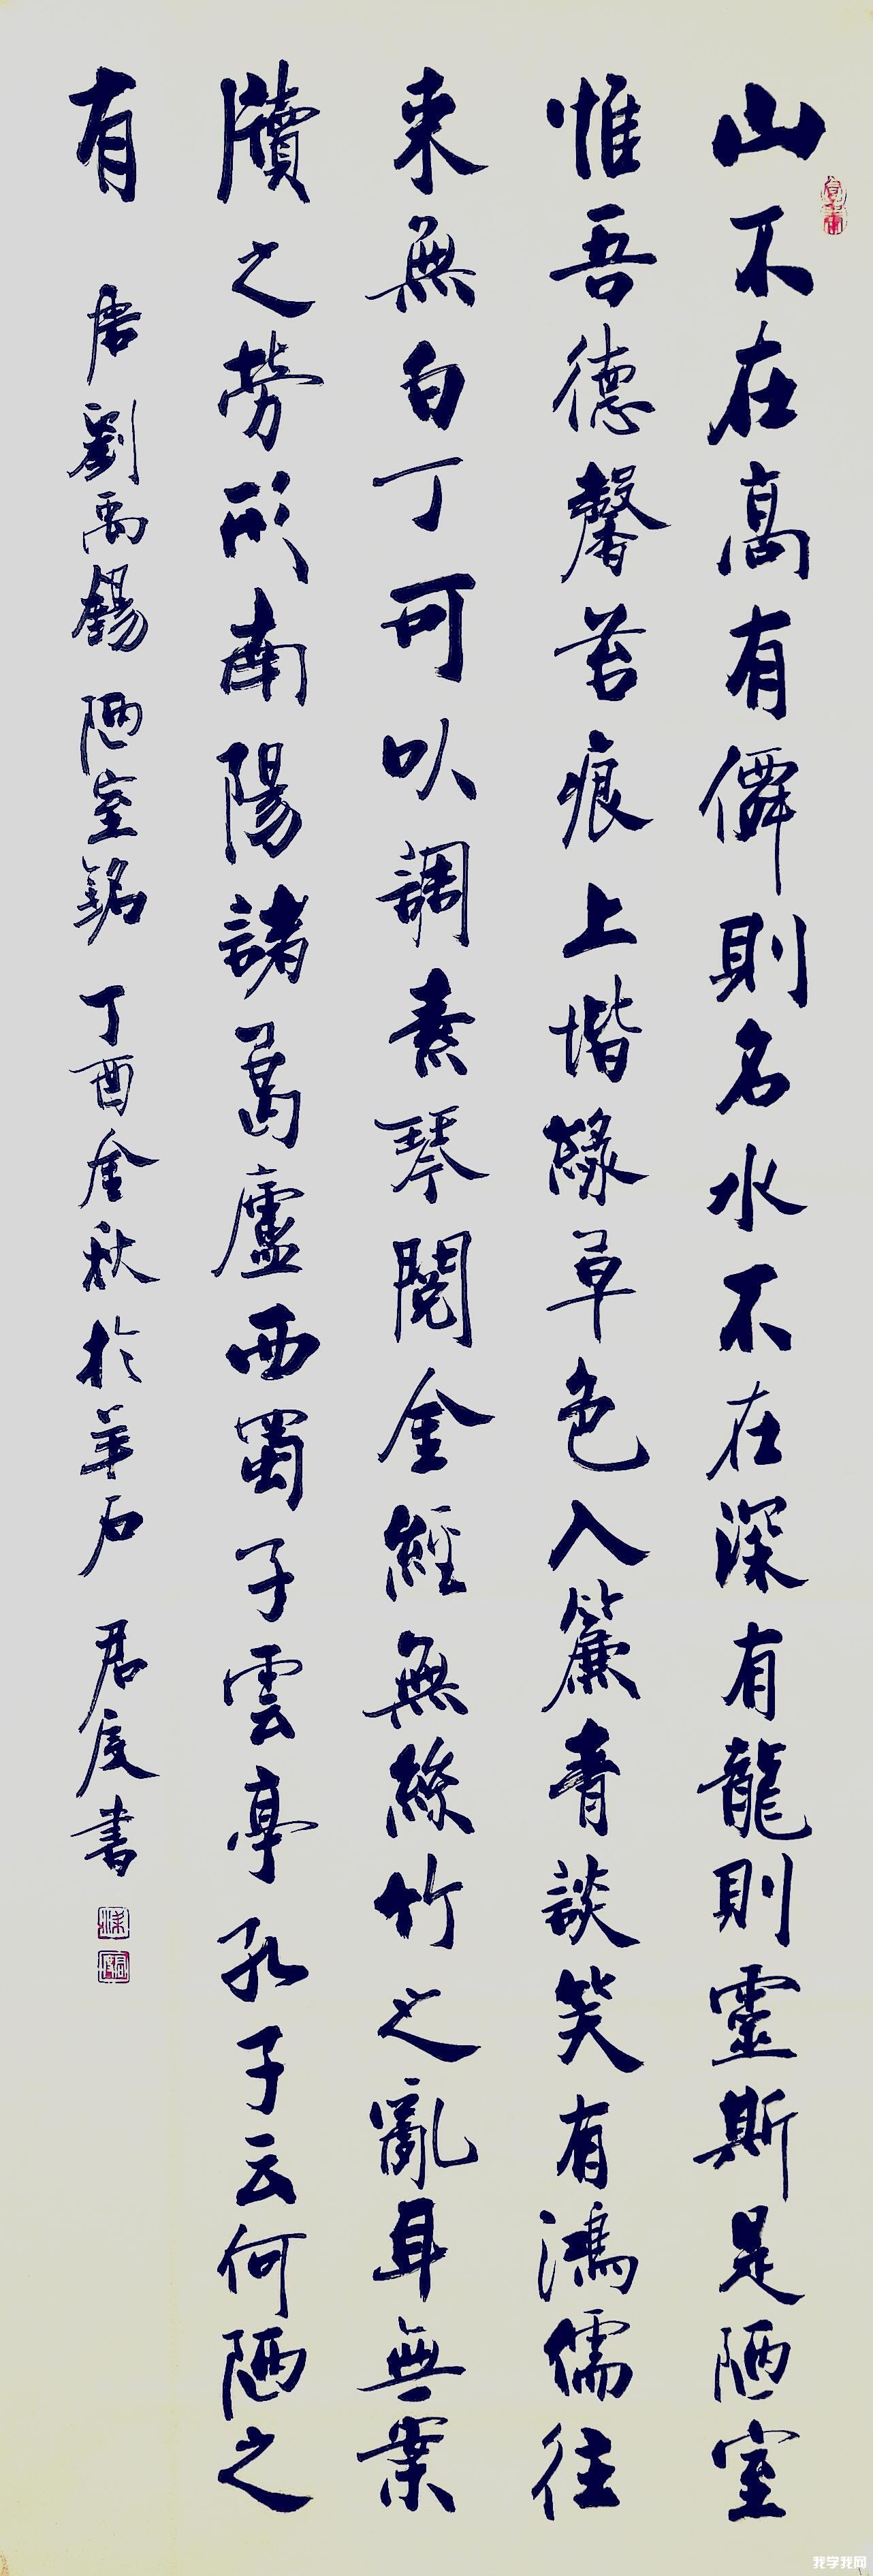 山不在高有僊則名水不在深有龍則靈斯是陋室
惟吾德馨苔痕上堦綠草色入簾青談笑有鴻儒往
来無白丁可以調素琴閱金經無絲竹之亂耳無案
牘之勞形南陽諸葛廬西蜀子雲亭孔子云何陋之
有 唐劉禹錫陋室銘 丁酉金秋於羊石 君度書
我学我网